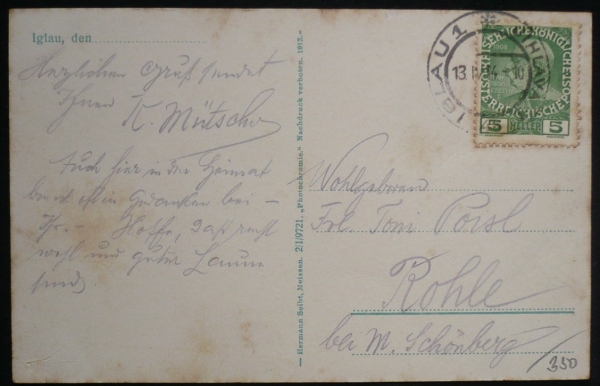 Iglau, den
Herzlichen Gruß sendet
Ihnen K. Mütsch
Auch hier in der Heimat
bin ich oft in Gedanken bei
Ihr. - Hoffe, daß recht
wohl und guter Laune
sind.
— Hermann Seibt, Meissen. 2/1/9721. „Photochromie.“ Nachdruck verboten. 1913.
IGLAU 1 * IHLAVA
13 IV 14 - 10
KAISERLICHE KÖNIGLICHE
ÖSTERREICHISCHE POST
5 HELLER 5
Wohlgeboren
Frl. Toni Porsl
Rohle
bei M. Schönberg
350